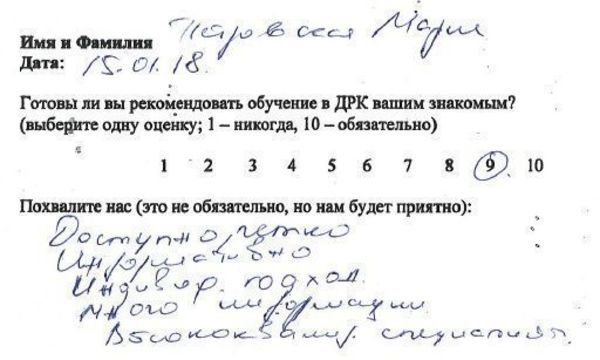 Имя и Фамилия Петровская Мария
Дата: 15.01.18.
Готовы ли вы рекомендовать обучение в ДРК вашим знакомым?
(выберите одну оценку; 1 – никогда, 10 – обязательно)
1 2 3 4 5 6 7 8 9 10
Похвалите нас (это не обязательно, но нам будет приятно):
Доступно, четко
Информативно
Индивид. подход.
Много информации.
Высококвалиф. специалист.